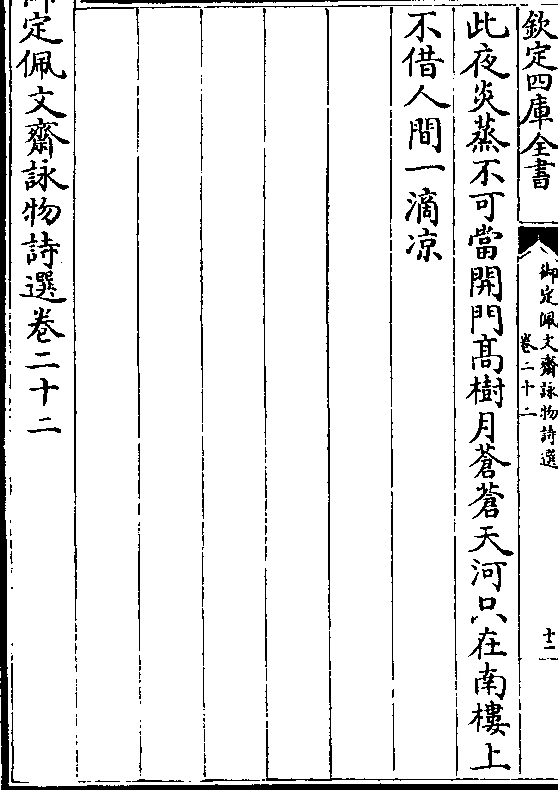 欽定四庫全書
御定佩文齋詠物詩選
卷二十二
十二
此夜炎蒸不可當開門髙樹月蒼蒼天河只在南樓上
不借人間一滴凉
御定佩文齋詠物詩選卷二十二